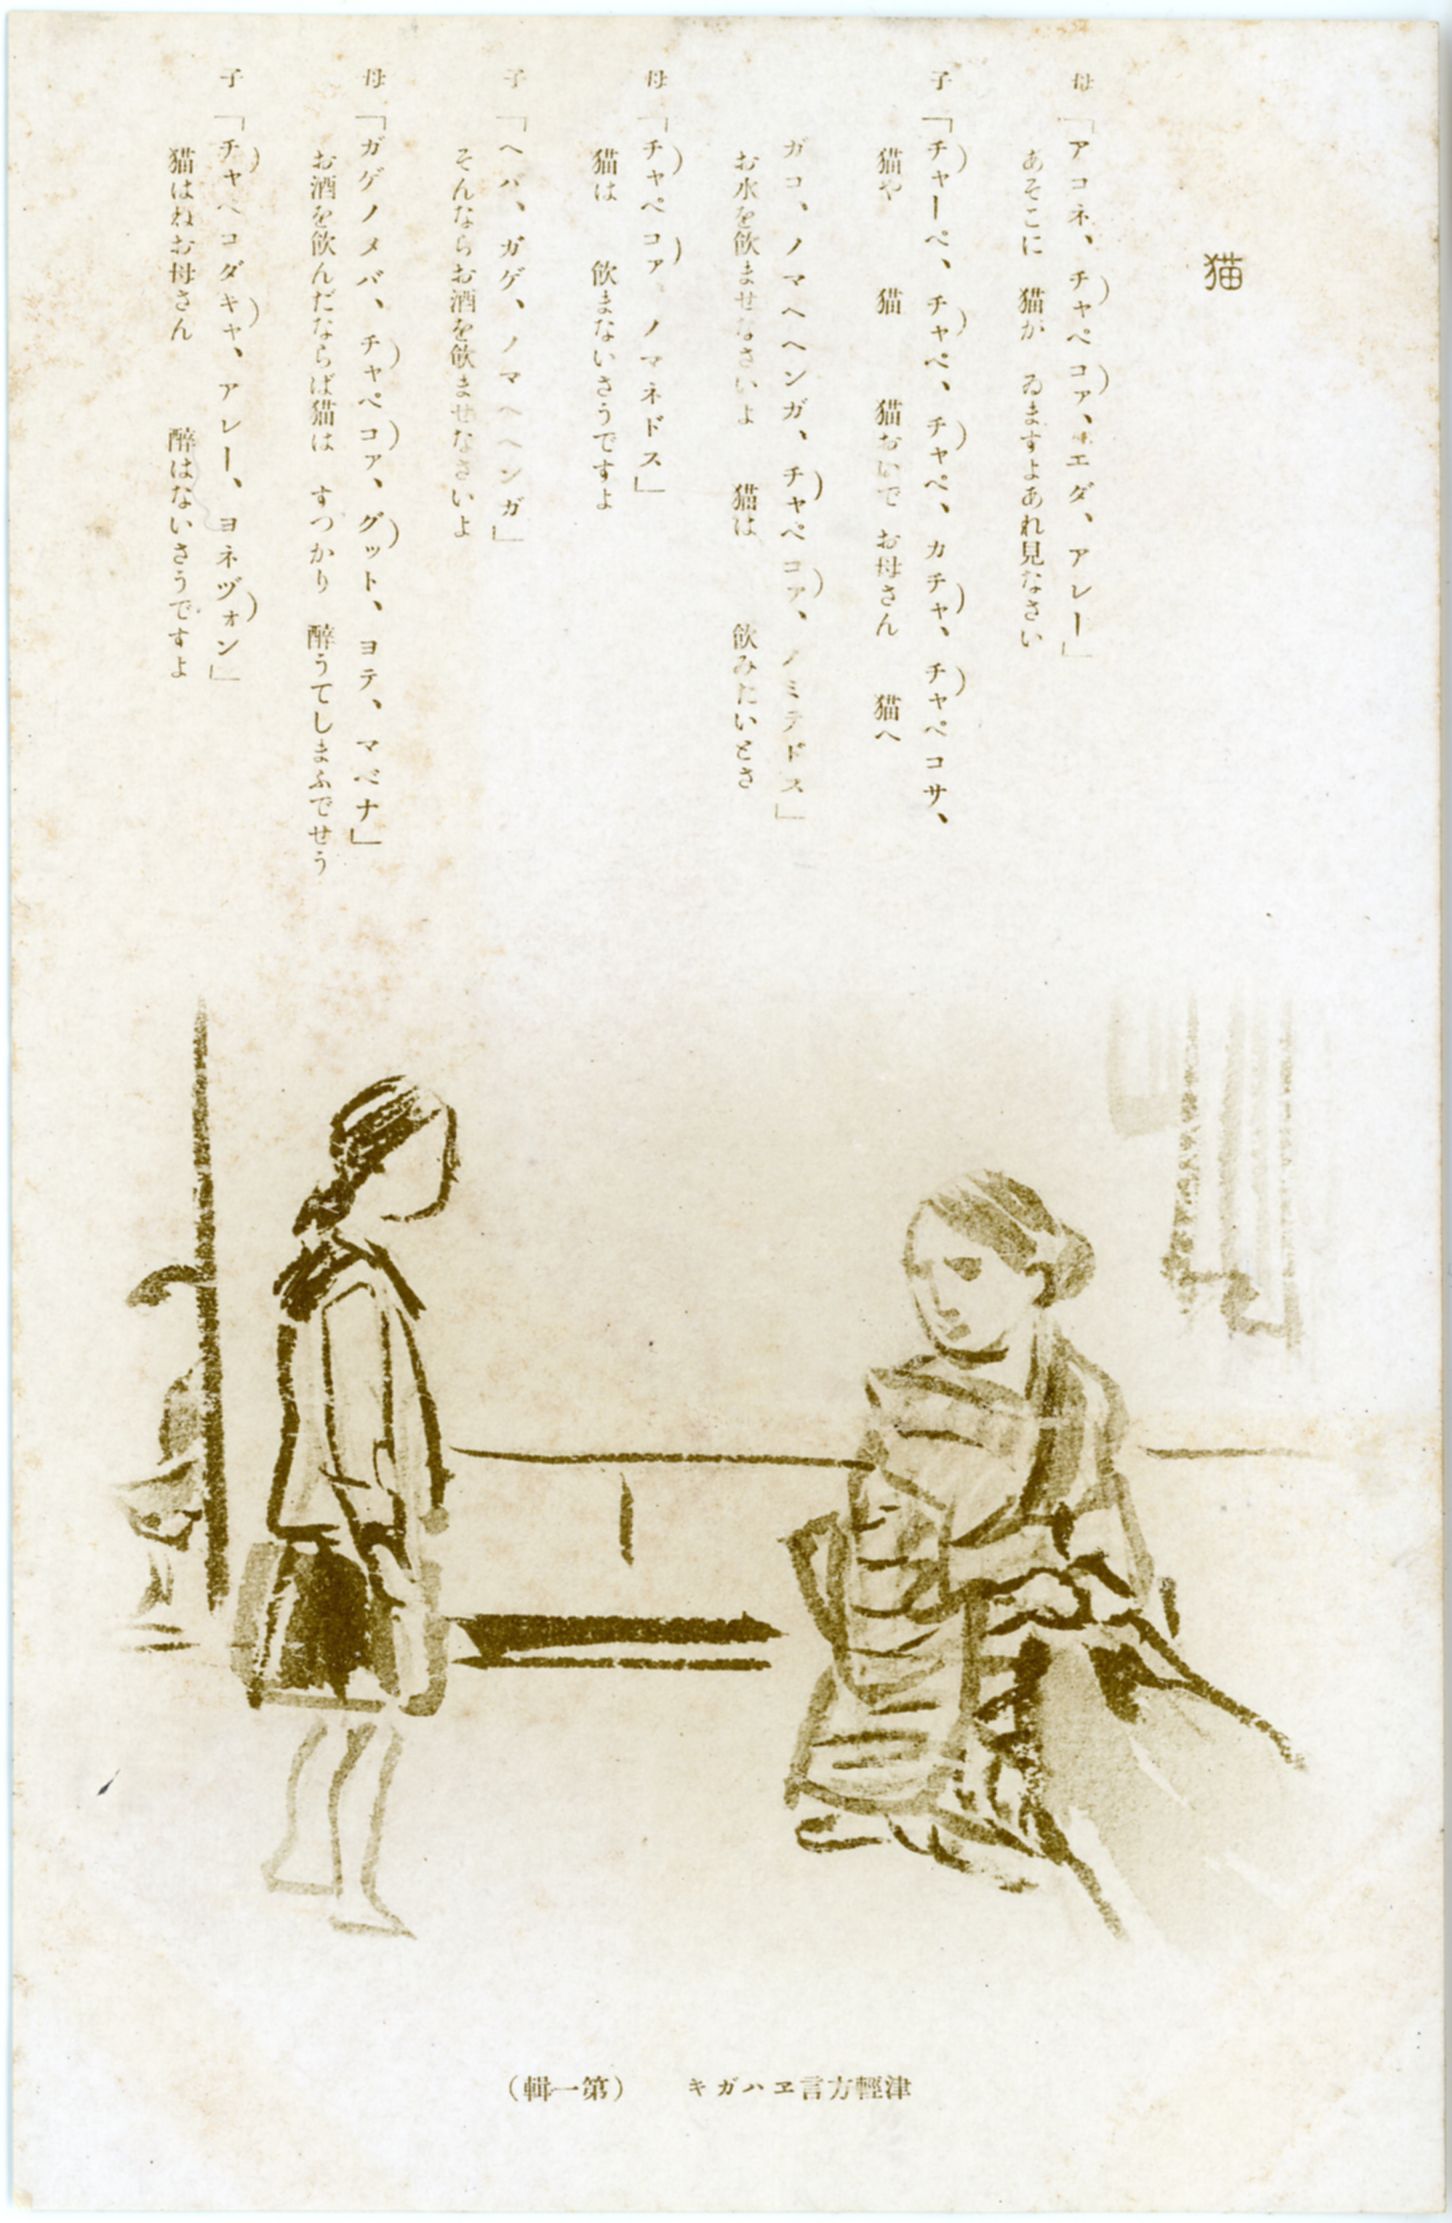 猫
母「アコネ、チャペコァ、エダ、アレー」
あそこに 猫が ゐますよあれ見なさい
子「チャーペ、チャペ、チャペ、カチャ、チャペコサ、
猫や 猫 猫おいで お母さん 猫へ
ガコ、ノマヘヘンガ、チャペコァ、ノミテドス」
お水を飲ませなさいよ 猫は 飲みたいとさ
母「チャペコァ ノマネドス」
猫は 飲まないさうですよ
子「ヘバ、ガゲ、ノマヘヘンガ」
そんならお酒を飲ませなさいよ
母「ガゲノメバ、チャペコァ、グット、ヨテ、マベナ」
お酒を飲んだならば猫は すつかり 醉うてしまふでせう
子「チャペコダキャ、アレー、ヨネヅォン」
猫はねお母さん 醉はないさうですよ
津輕方言ヱハガキ (第一輯)